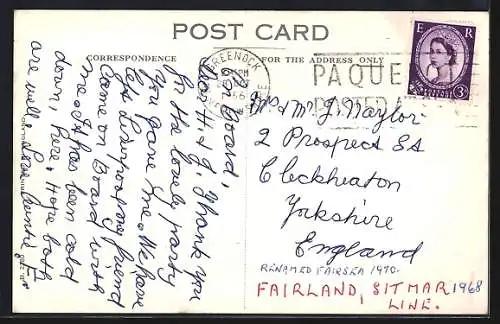 POST CARD
CORRESPONDENCE
FOR THE ADDRESS ONLY
GREENOCK
E R
3D
PAQUE
POSTED
On Board,
Dear H. & J. Thank you
for the lovely party
you gave me. We have
left Liverpool one friend
came on Board with
me. It has been cold
down here. Hope both
are well. Love
Mr & Mrs J. Naylor
2 Prospect St
Cleckheaton
Yorkshire
England
RENAMED FAIRSEA 1970.
FAIRLAND, SITMAR 1968
LINE.